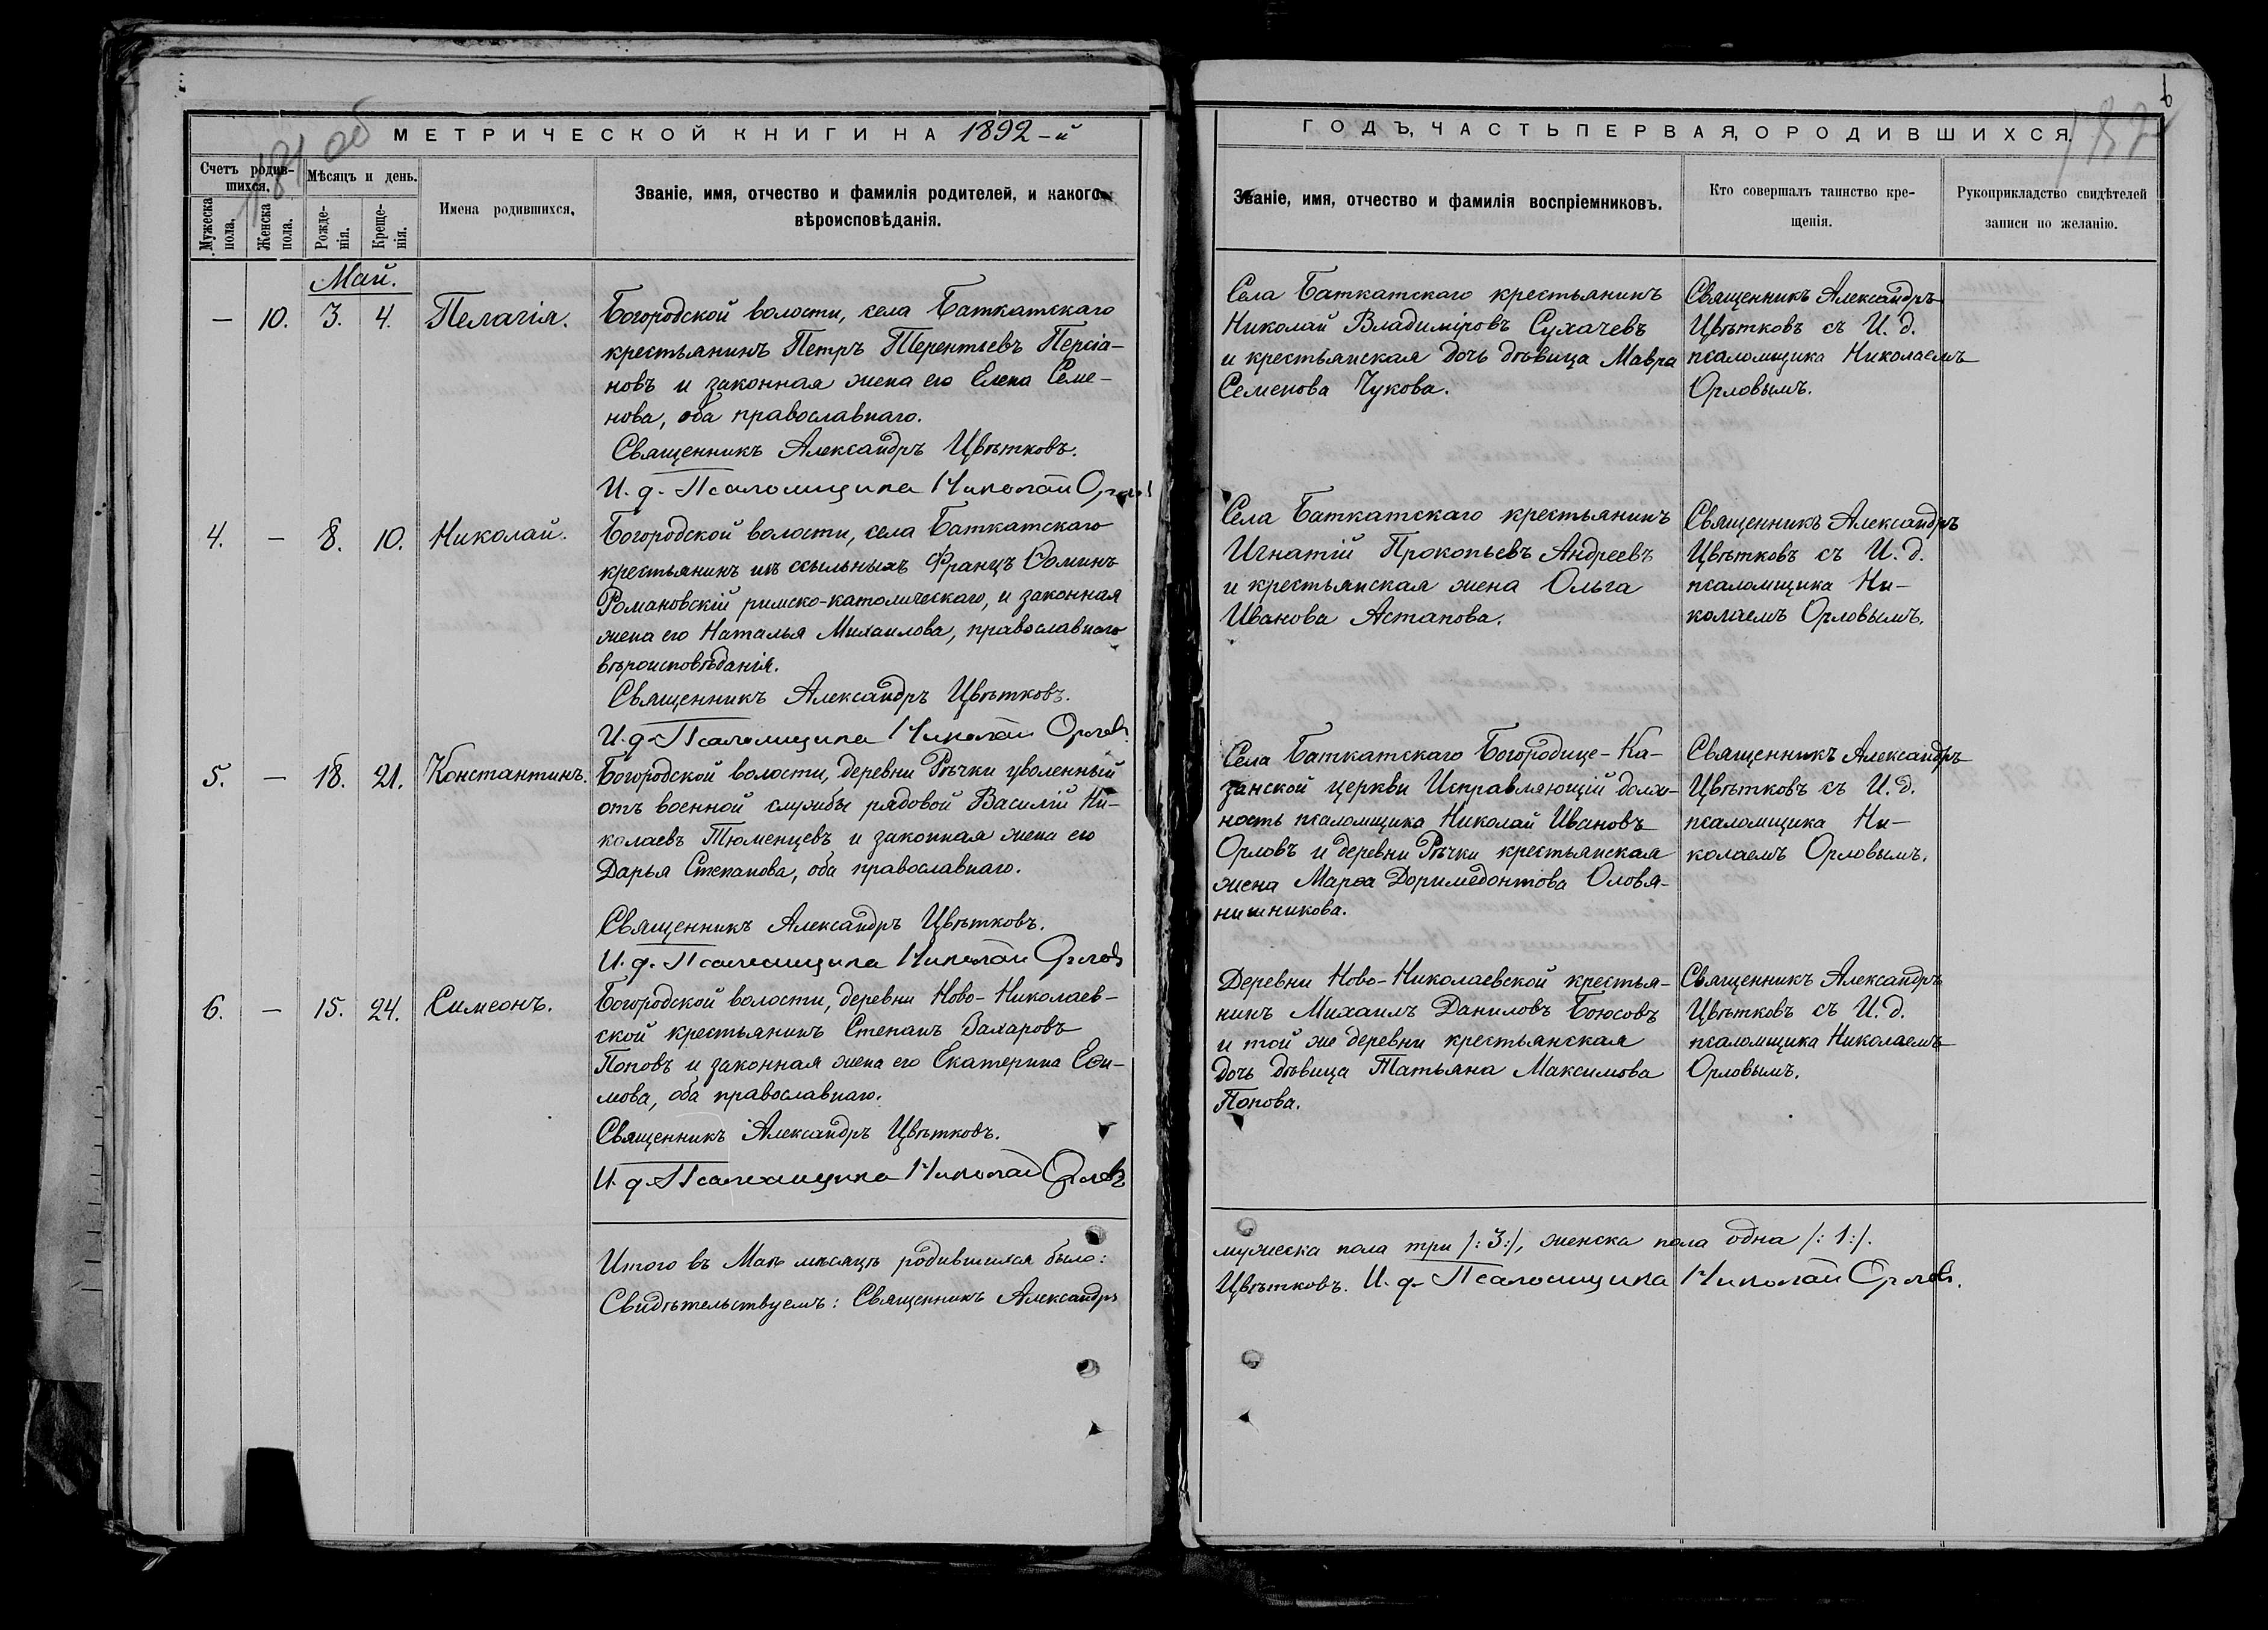 МЕТРИЧЕСКОЙ КНИГИ НА 1892-й
Счетъ родив-
шихся.
Мѣсяцъ и день.
Мужеска
пола.
Женска
пола.
Рожде-
нія.
Креще-
нія.
Имена родившихся.
Званіе, имя, отчество и фамилія родителей, и какого
вѣроисповѣданія.
Май.
— 10. 3. 4. Пелагія.
Богородской волости, села Баткатскаго
крестьянинъ Петръ Терентьевъ Персіа-
новъ и законная жена его Елена Семе-
нова, оба православнаго.
Священникъ Александръ Цвѣтковъ.
И. д. Псаломщика Николай Орловъ
4. — 8. 10. Николай.
Богородской волости, села Баткатскаго
крестьянинъ изъ ссыльныхъ Францъ Ѳоминъ
Романовскій римско-католическаго, и законная
жена его Наталья Михаилова, православнаго
вѣроисповѣданія.
Священникъ Александръ Цвѣтковъ.
И. д. Псаломщика Николай Орловъ.
5. — 18. 21. Константинъ.
Богородской волости, деревни Рѣчки уволенный
отъ военной службы рядовой Василій Ни-
колаевъ Тюменцевъ и законная жена его
Дарья Степанова, оба православнаго.
Священникъ Александръ Цвѣтковъ.
И. д. Псаломщика Николай Орловъ
6. — 15. 24. Симеонъ.
Богородской волости, деревни Ново-Николаев-
ской крестьянинъ Степанъ Захаровъ
Поповъ и законная жена его Екатерина Еѳи-
мова, оба православнаго.
Священникъ Александръ Цвѣтковъ.
И. д. Псаломщика Николай Орловъ
Итого въ Маѣ мѣсяцѣ родившихся было:
Свидѣтельствуемъ: Священникъ Александръ
ГОДЪ, ЧАСТЬ ПЕРВАЯ, О РОДИВШИХСЯ.
Званіе, имя, отчество и фамилія воспріемниковъ.
Кто совершалъ таинство кре-
щенія.
Рукоприкладство свидѣтелей
записи по желанію.
Села Баткатскаго крестьянинъ
Николай Владиміровъ Сухачевъ
и крестьянская дочь дѣвица Мавра
Семенова Чукова.
Священникъ Александръ
Цвѣтковъ съ И. д.
псаломщика Николаемъ
Орловымъ.
Села Баткатскаго крестьянинъ
Игнатій Прокопьевъ Андреевъ
и крестьянская жена Ольга
Иванова Астапова.
Священникъ Александръ
Цвѣтковъ съ И. д.
псаломщика Ни-
колаемъ Орловымъ.
Села Баткатскаго Богородице-Ка-
занской церкви Исправляющій долж-
ность псаломщика Николай Ивановъ
Орловъ и деревни Рѣчки крестьянская
жена Марѳа Доримедонтова Оловя-
нишникова.
Священникъ Александръ
Цвѣтковъ съ И. д.
псаломщика Ни-
колаемъ Орловымъ.
Деревни Ново-Николаевской крестья-
нинъ Михаилъ Даниловъ Боюсовъ
и той же деревни крестьянская
дочь дѣвица Татьяна Максимова
Попова.
Священникъ Александръ
Цвѣтковъ съ И. д.
псаломщика Николаемъ
Орловымъ.
мужеска пола три /:3:/, женска пола одна /:1:/.
Цвѣтковъ. И. д. Псаломщика Николай Орловъ.